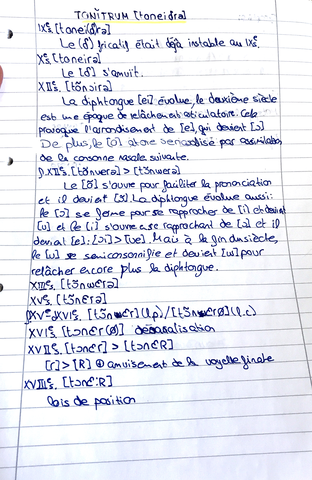 TONITRUM [toneiðrə]
IXe s. [toneiðrə]
Le (ð) fricatif était déjà instable au IXe s.
Xe s. [toneirə]
Le [ð] s'amuit.
XIIe s. [tõnɔirə]
La diphtongue [ei] évolue, le douxième siècle
est une époque de relâchement articulatoire. Cela
provoque l'arrondissement de [e], qui devient [ɔ]
De plus, le [o] atone se nasalise par assimilation
de la consonne nasale suivante.
f. XIIe s. [tõnuerə] > [tɔ̃nwerə]
Le [õ] s'ouvre pour faciliter la prononciation
et il devient [ɔ̃]. La diphtongue évolue aussi:
le [ɔ] se ferme pour se rapprocher de [i] et devient
[u] et le [i] s'ouvre en se rapprochant de [ɔ] et il
devient [e]: [ɔi] > [ue]. Mais à la fin du siècle,
le [u] se semiconsonnifie et devient [w] pour
relâcher encore plus la diphtongue.
XIIIe s. [tɔ̃nwɛrə]
XVe s. [tɔ̃nɛrə]
f. XVe-d. XVIe s. [tɔ̃nwɛr] (l.p) / [tɔ̃nɛr(ø)] (l.c)
XVIe s. [tɔnɛr(ø)] dénasalisation
XVIIe s. [tɔnɛr] > [tɔnɛR]
[r] > [R] ⊕ amuïssement de la voyelle finale
XVIIIe s. [tɔnɛ:R]
lois de position